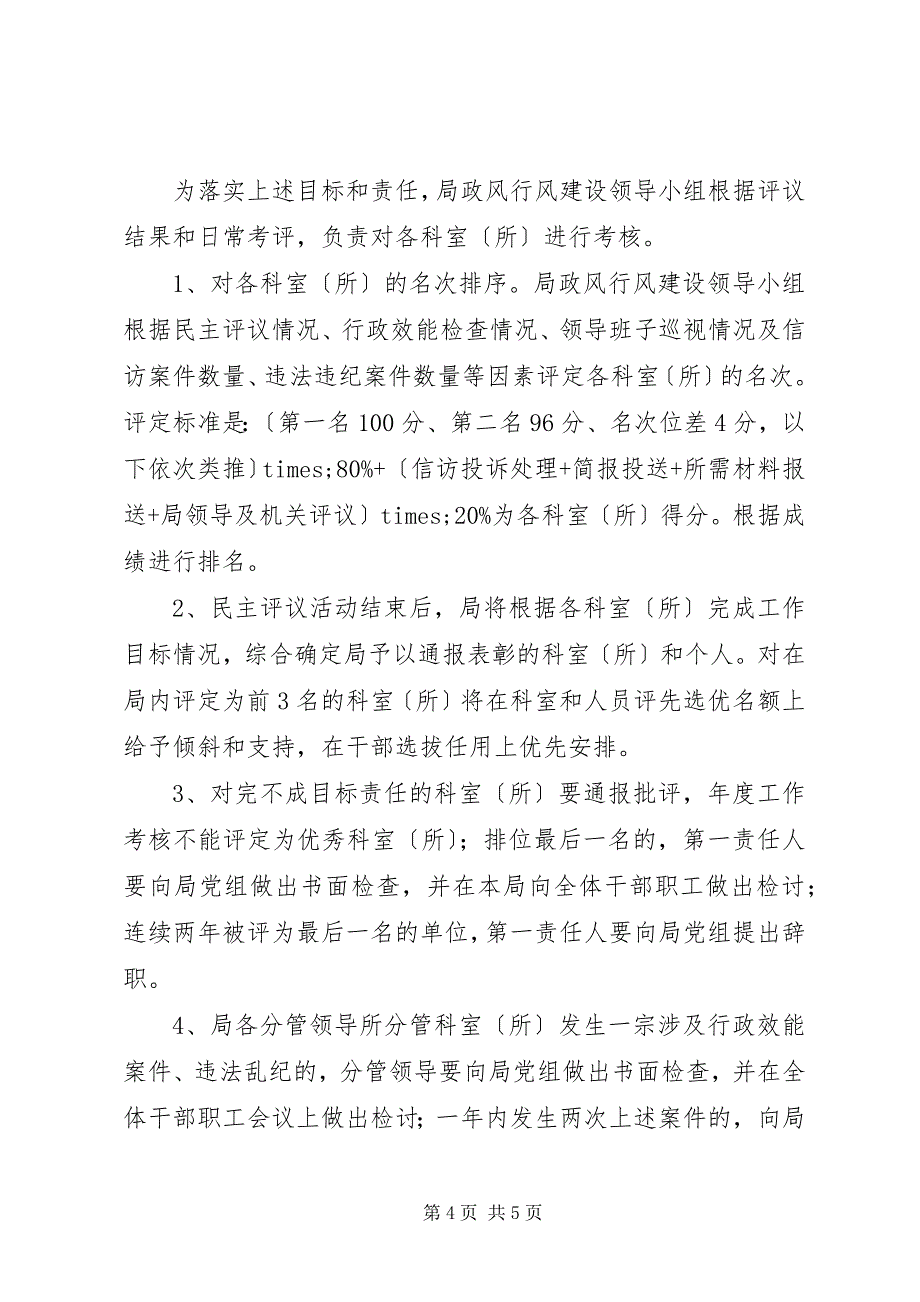 为落实上述目标和责任，局政风行风建设领导小组根据评议
结果和日常考评，负责对各科室〔所〕进行考核。
1、对各科室〔所〕的名次排序。局政风行风建设领导小组
根据民主评议情况、行政效能检查情况、领导班子巡视情况及信
访案件数量、违法违纪案件数量等因素评定各科室〔所〕的名次。
评定标准是:〔第一名 100 分、第二名 96 分、名次位差 4 分，以
下依次类推〕times;80%+〔信访投诉处理+简报投送+所需材料报
送+局领导及机关评议〕times;20%为各科室〔所〕得分。根据成
绩进行排名。
2、民主评议活动结束后，局将根据各科室〔所〕完成工作
目标情况，综合确定局予以通报表彰的科室〔所〕和个人。对在
局内评定为前 3 名的科室〔所〕将在科室和人员评先选优名额上
给予倾斜和支持，在干部选拔任用上优先安排。
3、对完不成目标责任的科室〔所〕要通报批评，年度工作
考核不能评定为优秀科室〔所〕；排位最后一名的，第一责任人
要向局党组做出书面检查，并在本局向全体干部职工做出检讨；
连续两年被评为最后一名的单位，第一责任人要向局党组提出辞
职。
4、局各分管领导所分管科室〔所〕发生一宗涉及行政效能
案件、违法乱纪的，分管领导要向局党组做出书面检查，并在全
体干部职工会议上做出检讨；一年内发生两次上述案件的，向局
第 4 页 共 5 页